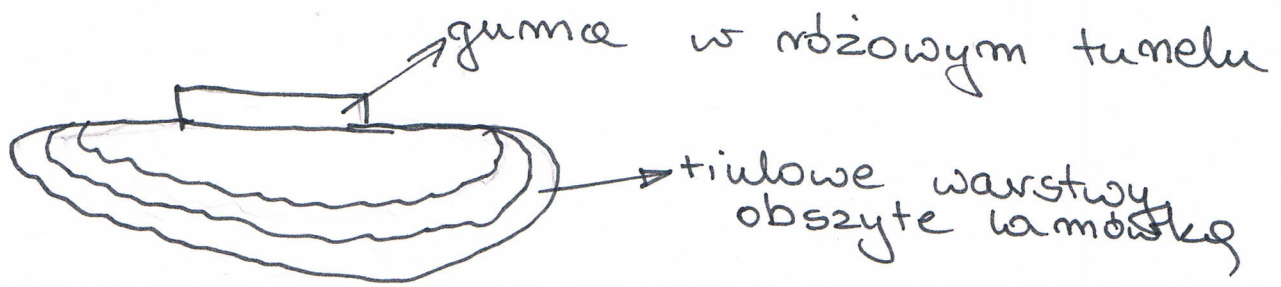 guma w różowym tunelu
tiulowe warstwy
obszyte lamówką